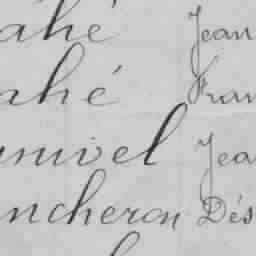 ahé Jean
ahé Fran
nuel Jea
ncheron Dés